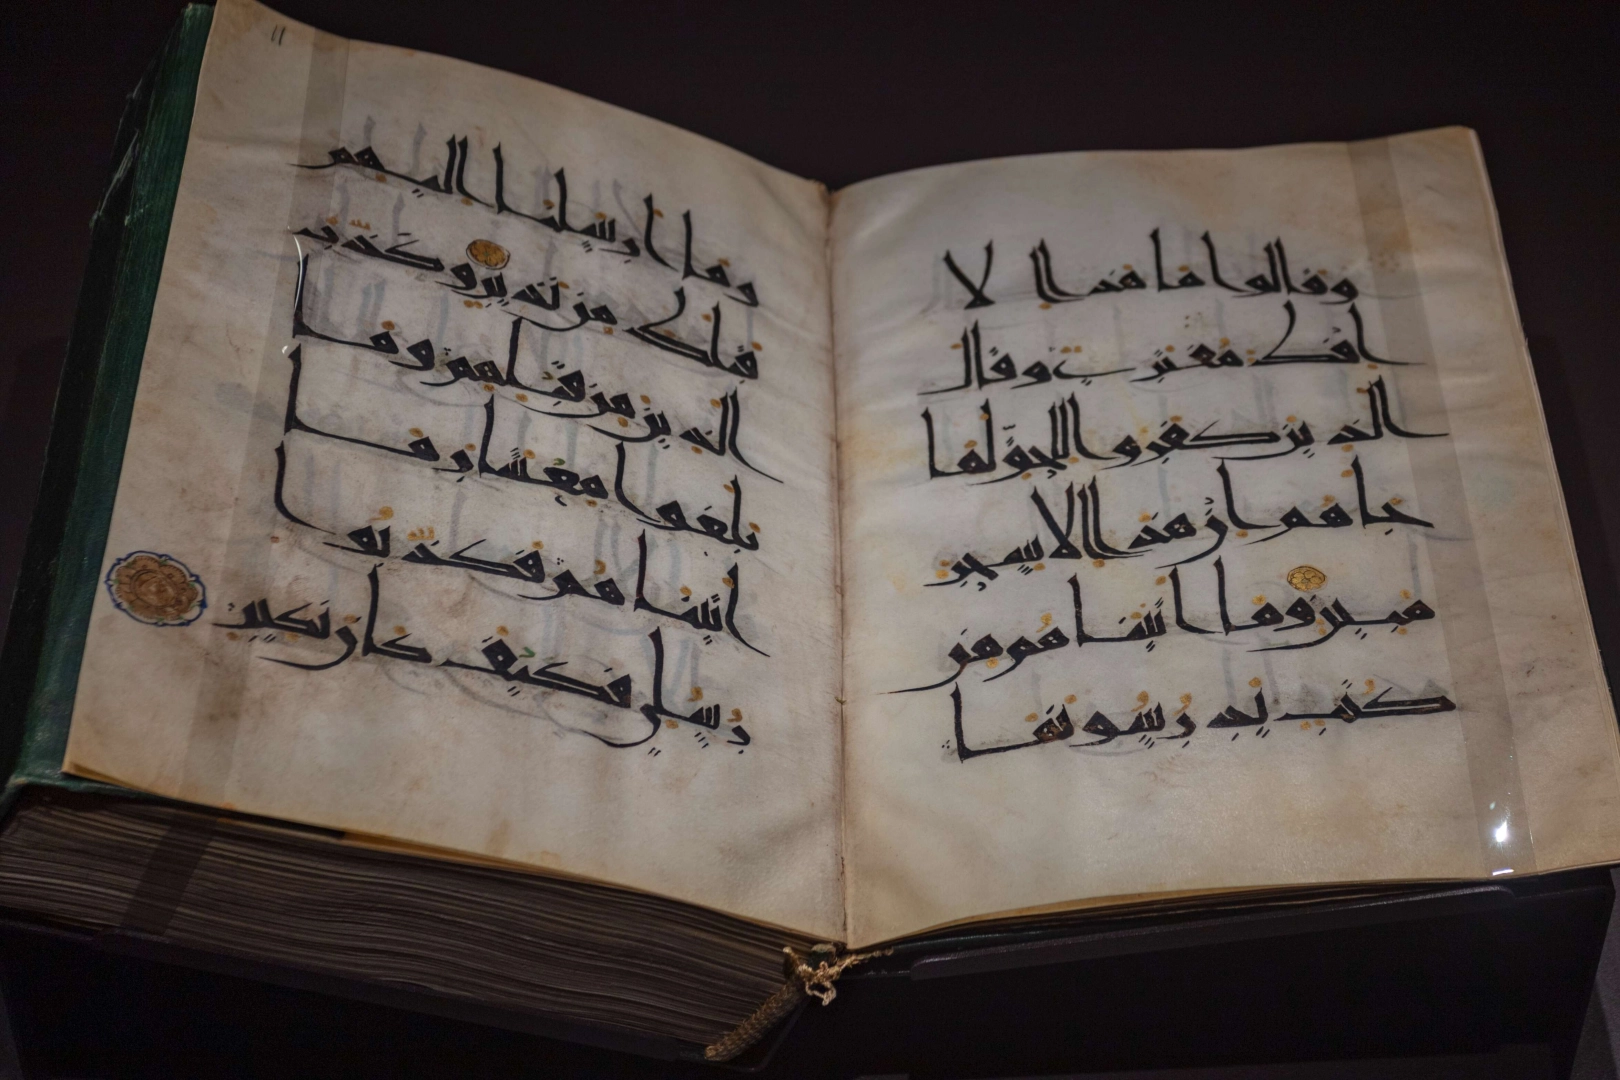 وقالوا ما هذا الا
افك مفترى وقال
الذين كفروا للحق لما
جاهم ان هذا الا سحر
مبين وما اتينهم من
كتب يدرسونها
وما ارسلنا اليهم
قبلك من نذير وكذب
الذين من قبلهم وما
بلغوا معشار ما
اتينهم فكذبوا
رسلي فكيف كان نكير